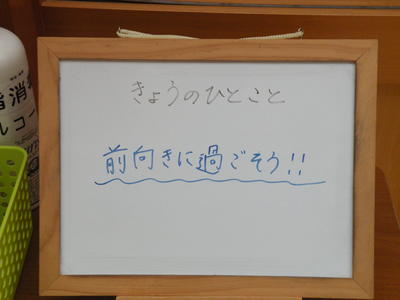 きょうのひとこと
前向きに過ごそう!!
消
コー